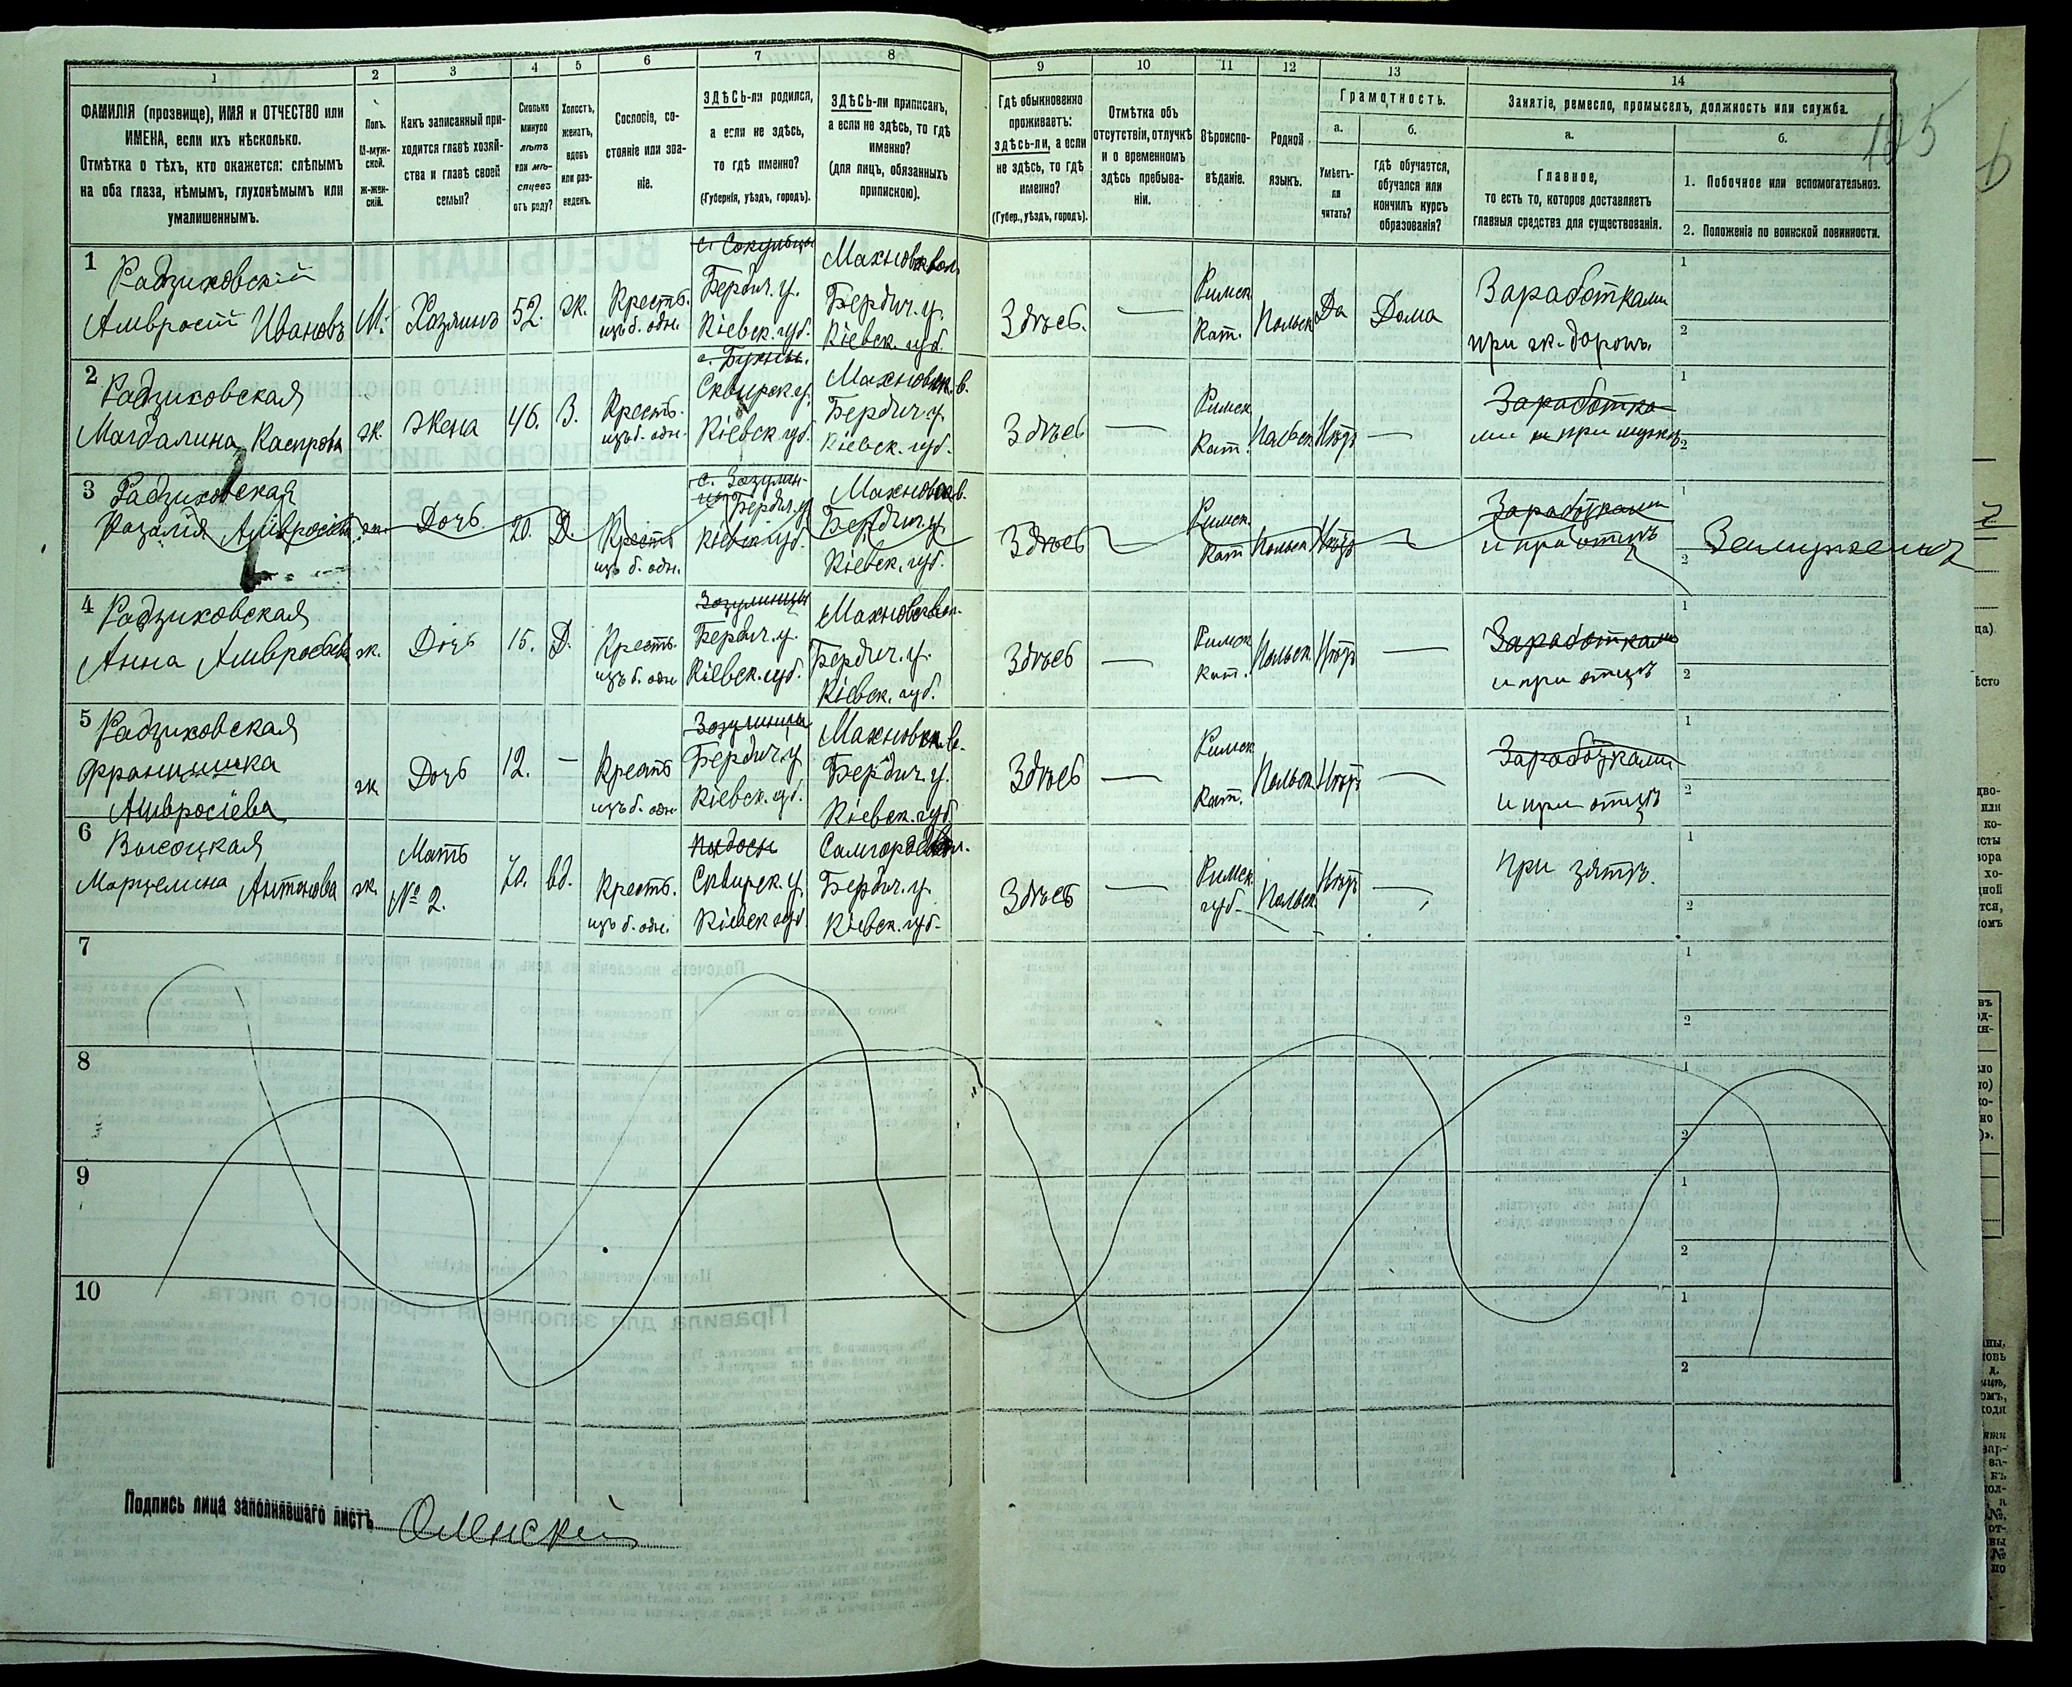 1 2 3 4 5 6 7 8 9 10 11 12 13 14
ФАМИЛІЯ (прозвище), ИМЯ и ОТЧЕСТВО или
ИМЕНА, если ихъ нѣсколько.
Отмѣтка о тѣхъ, кто окажется: слѣпымъ
на оба глаза, нѣмымъ, глухонѣмымъ или
умалишеннымъ.
Полъ.
М-муж-
ской.
Ж-жен-
скій.
Какъ записанный при-
ходится главѣ хозяй-
ства и главѣ своей
семьи?
Сколько
минуло
лѣтъ
или мѣ-
сяцевъ
отъ роду?
Холостъ,
женатъ,
вдовъ
или раз-
веденъ.
Сословіе, со-
стояніе или зва-
ніе.
ЗДѢСЬ-ли родился,
а если не здѣсь,
то гдѣ именно?
(Губернія, уѣздъ, городъ).
ЗДѢСЬ-ли приписанъ,
а если не здѣсь, то гдѣ
именно?
(для лицъ, обязанныхъ
припискою).
Гдѣ обыкновенно
проживаетъ:
здѣсь-ли, а если
не здѣсь, то гдѣ
именно?
(Губер., уѣздъ, городъ).
Отмѣтка объ
отсутствіи, отлучкѣ
и о временномъ
здѣсь пребыва-
ніи.
Вѣроиспо-
вѣданіе.
Родной
языкъ.
Грамотность.
а.
Умѣетъ-
ли
читать?
б.
Гдѣ обучается,
обучался или
кончилъ курсъ
образованія?
Занятіе, ремесло, промыселъ, должность или служба.
а.
Главное,
то есть то, которое доставляетъ
главныя средства для существованія.
б.
1. Побочное или вспомогательное.
2. Положеніе по воинской повинности.
1
Радзиховскій
Амвросій Ивановъ
М.
Хозяинъ
52.
ж.
Крестъ.
изъ б. одн.
Бердич. у.
Кіевск. губ.
Махновск. вол.
Бердич. у.
Кіевск. губ.
Здѣсь.
—
Римск
Кат.
Польск
Да
Дома
Заработками
при ж. дорогъ.
1
2
2
Радзиховская
Магдалина Каспрова
ж.
Жена
46.
З.
Крестъ.
изъ б. одн.
Сквирск. у.
Кіевск. губ.
Махновск. в.
Бердич. у.
Кіевск. губ.
Здѣсь
—
Римск
Кат.
Польск
Нѣтъ
—
Заработка-
ми и при мужѣ
1
2
3
Радзиховская
Розалія Амвросіева
ж.
Дочь
20.
Д.
Крестъ
изъ б. одн.
Бердич. у
Кіевск. губ.
Махновск. в.
Бердич. у
Кіевск. губ.
Здѣсь
Римск.
Кат
Польск
Нѣтъ
Заработками
и при отцѣ
1
2
Замужемъ
4
Радзиховская
Анна Амвросіева
ж.
Дочь
15.
Д.
Крестъ.
изъ б. одн
Зозулинцы
Бердич. у.
Кіевск. губ.
Махновск. вол.
Бердич. у.
Кіевск. губ.
Здѣсь
—
Римск
Кат.
Польск
Нѣтъ
—
Заработками
и при отцѣ
1
2
5
Радзиховская
Францишка
Амвросіева
ж
Дочь
12.
—
Крестъ
изъ б. одн
Зозулинцы
Бердич. у
Кіевск. губ.
Махновск. в.
Бердич. у.
Кіевск. губ.
Здѣсь
—
Римск
Кат.
Польск
Нѣтъ
—
Заработками
и при отцѣ
1
2
6
Высоцкая
Марцелина Антонова
ж.
Мать
№ 2.
70.
вд.
Крестъ.
изъ б. одн.
Сквирск. у.
Кіевск губ
Самгородск вол.
Бердич. у.
Кіевск. губ.
Здѣсь
—
Римск.
губ.
Польск
Нѣтъ
—
При зятѣ.
1
2
7
1
2
8
1
2
9
1
2
10
1
2
Подпись лица заполнявшаго листъ